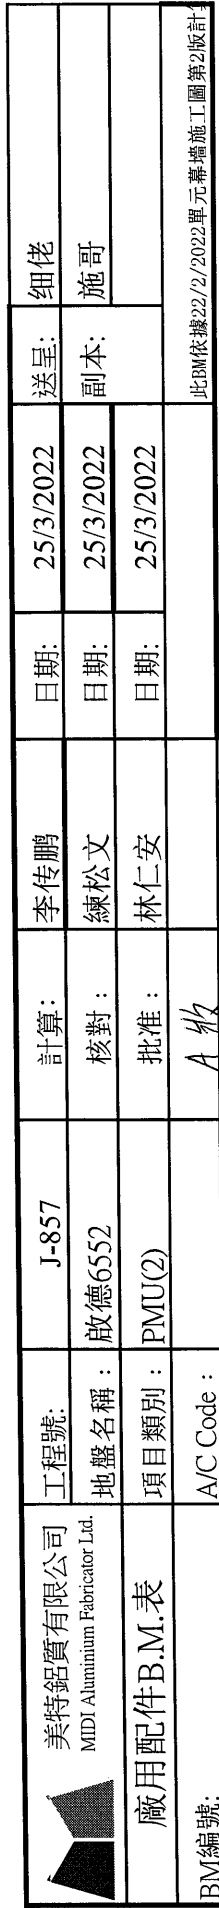 美特鋁質有限公司
MIDI Aluminium Fabricator Ltd.
工程號: J-857 計算: 李传鹏 日期: 25/3/2022 送呈: 细佬
地盤名稱: 啟德6552 核對: 練松文 日期: 25/3/2022 副本: 施哥
廠用配件B.M.表 項目類別: PMU(2) 批准: 林仁安 日期: 25/3/2022
BM編號: A/C Code: A 此BM依據22/2/2022單元幕墻施工圖第2版計